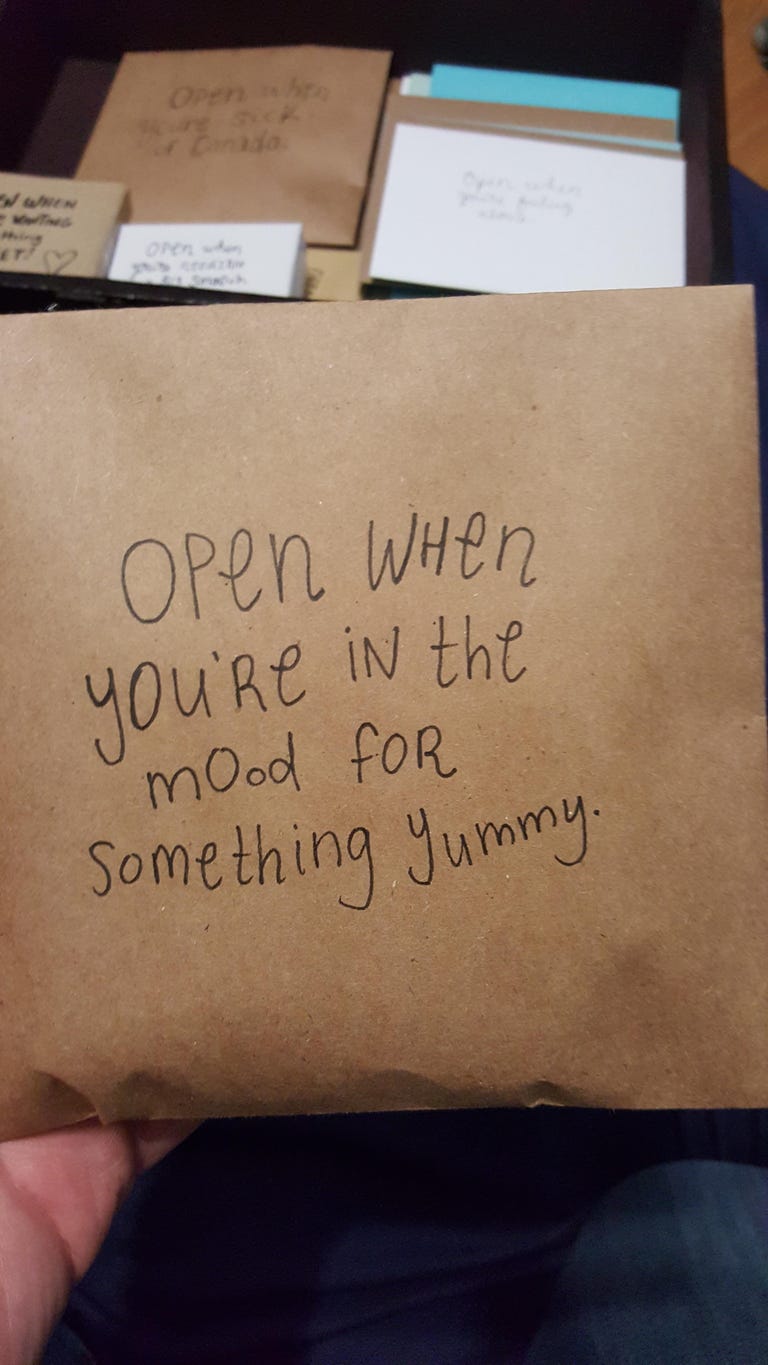 Open when
you're sick
of Canada.
EN WHEN
E WANTING
thing
ET!
Open when
you're
Open when
you're feeling
OPen WHen
yOU'Re iN the
mOod foR
something yummy.